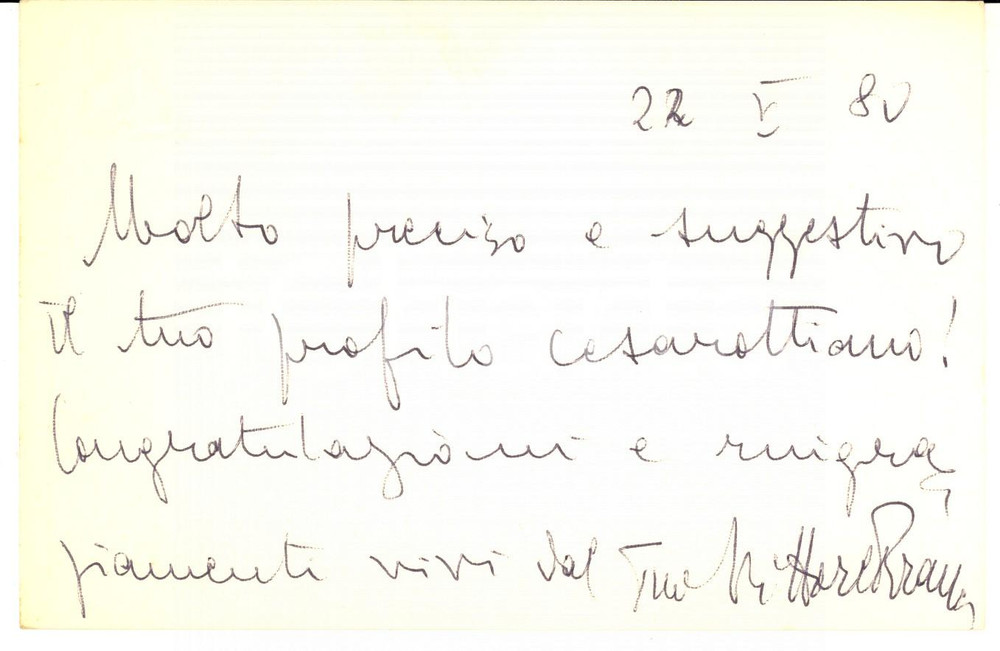 22 V 80
Molto preciso e suggestivo
il tuo profilo cesarottiano!
Congratulazioni e ringra
ziamenti vivi dal Tuo Vittore Branca